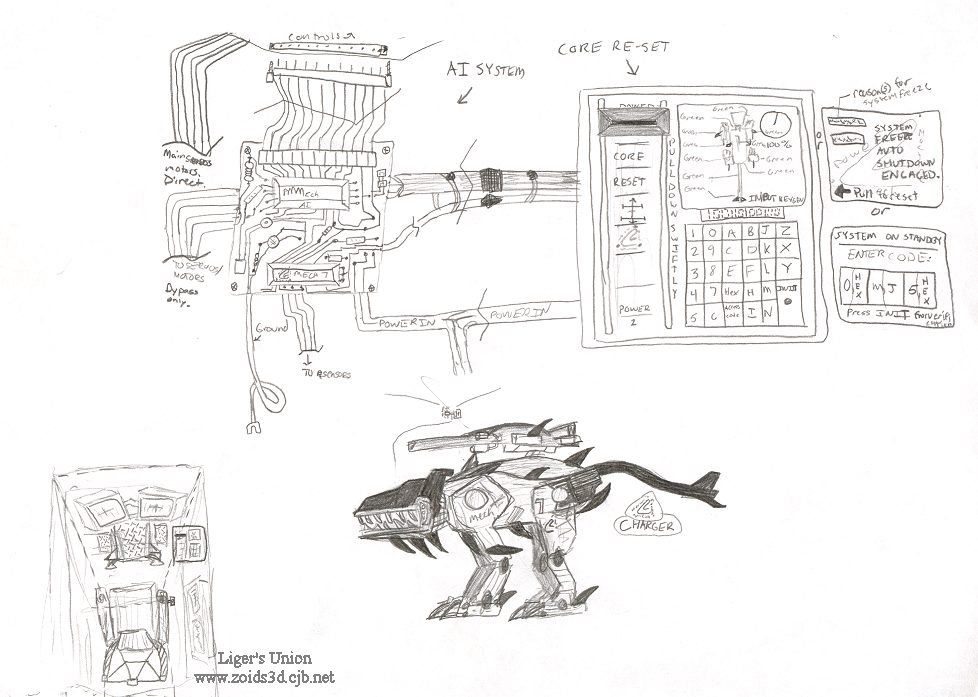 Controls
AI SYSTEM
CORE RE-SET
Main sensors
motors.
Direct
TO SERVOS/
MOTORS
Bypass
only.
Mech
AI
MECH 7
Ground
TO SENSORS
POWER IN
POWER IN
POWER
CORE
RESET
POWER
2
PULL DOWN SWIFTLY
Green
Green
Green
Green
Green
Green
Green
Green
Green
100%
INPUT KEYGEN
1 0 A B J Z
2 9 C D K X
3 8 E F L Y
4 7 Hex H M INIT
5 6 ACCESS CODE I N
reason(s) for
system freeze
SYSTEM
FREEZE
AUTO
SHUTDOWN
ENGAGED.
Pull to reset
or
or
SYSTEM ON STANDBY
ENTER CODE:
0, HEX M J 5, HEX
Press INIT for verification
Mech
CHARGER
Liger's Union
www.zoids3d.cjb.net